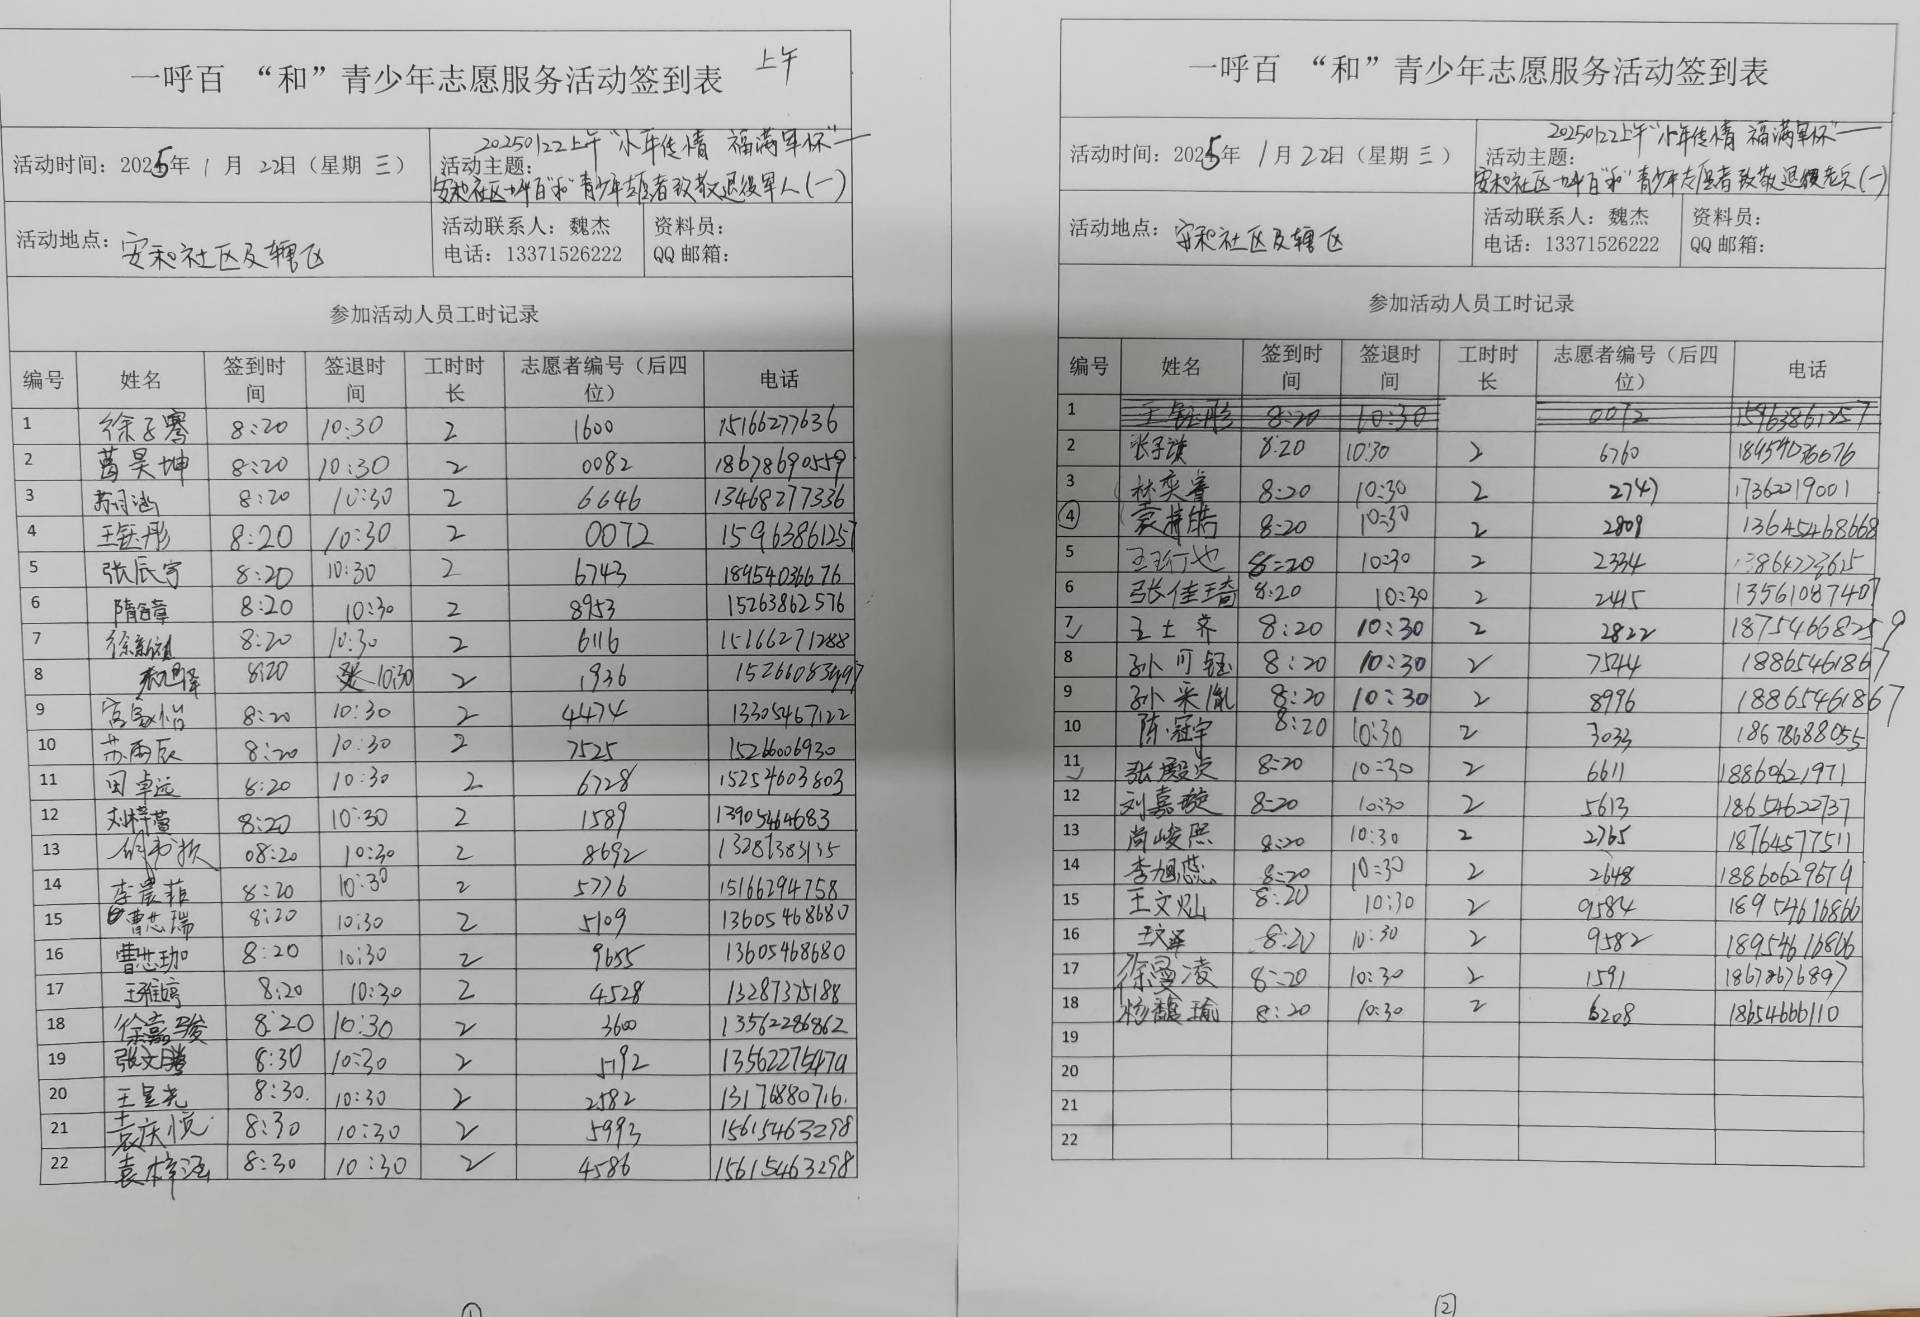 上午
一呼百 “和”青少年志愿服务活动签到表
活动时间：2025年 1 月 22日（星期 三）
活动主题：20250122上午“小年传情 福满军怀”——
安和社区一呼百“和”青少年志愿者致敬退役军人（一）
活动地点：安和社区及辖区
活动联系人：魏杰
电话：13371526222
资料员：
QQ邮箱：
参加活动人员工时记录
编号 姓名 签到时间 签退时间 工时时长 志愿者编号（后四位） 电话
1 徐子骞 8:20 10:30 2 1600 15166277636
2 葛昊坤 8:20 10:30 2 0082 18678690559
3 8:20 10:30 2 6646 13468277336
4 王钰彤 8:20 10:30 2 0072 15963861257
5 张辰宇 8:20 10:30 2 6743 18954036676
6 8:20 10:30 2 8953 15263862576
7 8:20 10:30 2 6116 15166271288
8 8:20 10:30 2 1936
9 宫家怡 8:20 10:30 2 4474 13305467122
10 苏雨辰 8:20 10:30 2 7525 15266006930
11 田卓远 8:20 10:30 2 6728 15254603803
12 刘梓萱 8:20 10:30 2 1589 13905464683
13 08:20 10:30 2 8692 13287383135
14 李宸菲 8:20 10:30 2 5776 15166294758
15 曹芯瑞 8:20 10:30 2 5109 13605468680
16 曹芯珈 8:20 10:30 2 9655 13605468680
17 王雅婷 8:20 10:30 2 4528 13287375188
18 徐嘉骏 8:20 10:30 2 3600 13562286862
19 张文腾 8:30 10:30 2 5192
20 王昱尧 8:30 10:30 2 2582 13176880716
21 袁庆悦 8:30 10:30 2 5993 15615463298
22 袁梓涵 8:30 10:30 2 4586 15615463298
①
一呼百 “和”青少年志愿服务活动签到表
活动时间：2025年 1 月 22日（星期 三）
活动主题：20250122上午“小年传情 福满军怀”——
安和社区一呼百“和”青少年志愿者致敬退役老兵（一）
活动地点：安和社区及辖区
活动联系人：魏杰
电话：13371526222
资料员：
QQ邮箱：
参加活动人员工时记录
编号 姓名 签到时间 签退时间 工时时长 志愿者编号（后四位） 电话
1 王钰彤 8:20 10:30 0072 15963861257
2 张子淇 8:20 10:30 2 6760 18954036676
3 林奕睿 8:20 10:30 2 2747 17362219001
4 8:20 10:30 2 2809 13645468668
5 王珩也 8:20 10:30 2 2334
6 张佳琦 8:20 10:30 2 2415 13561087407
7 王士齐 8:20 10:30 2 2822 18754668259
8 孙可钰 8:20 10:30 2 7544 18865461867
9 孙采胤 8:20 10:30 2 8996 18865461867
10 陈冠宇 8:20 10:30 2 3033 18678688055
11 8:20 10:30 2 6611 18860621971
12 刘嘉璇 8:20 10:30 2 5613 18654622737
13 尚峻熙 8:20 10:30 2 2765 18764577511
14 李旭蕊 8:20 10:30 2 2648 18860629679
15 王文灿 8:20 10:30 2 9584 18954616866
16 王文泽 8:20 10:30 2 9582 18954616866
17 徐曼凌 8:20 10:30 2 1591 18678676897
18 杨馥瑜 8:20 10:30 2 6208 18654666110
19
20
21
22
②